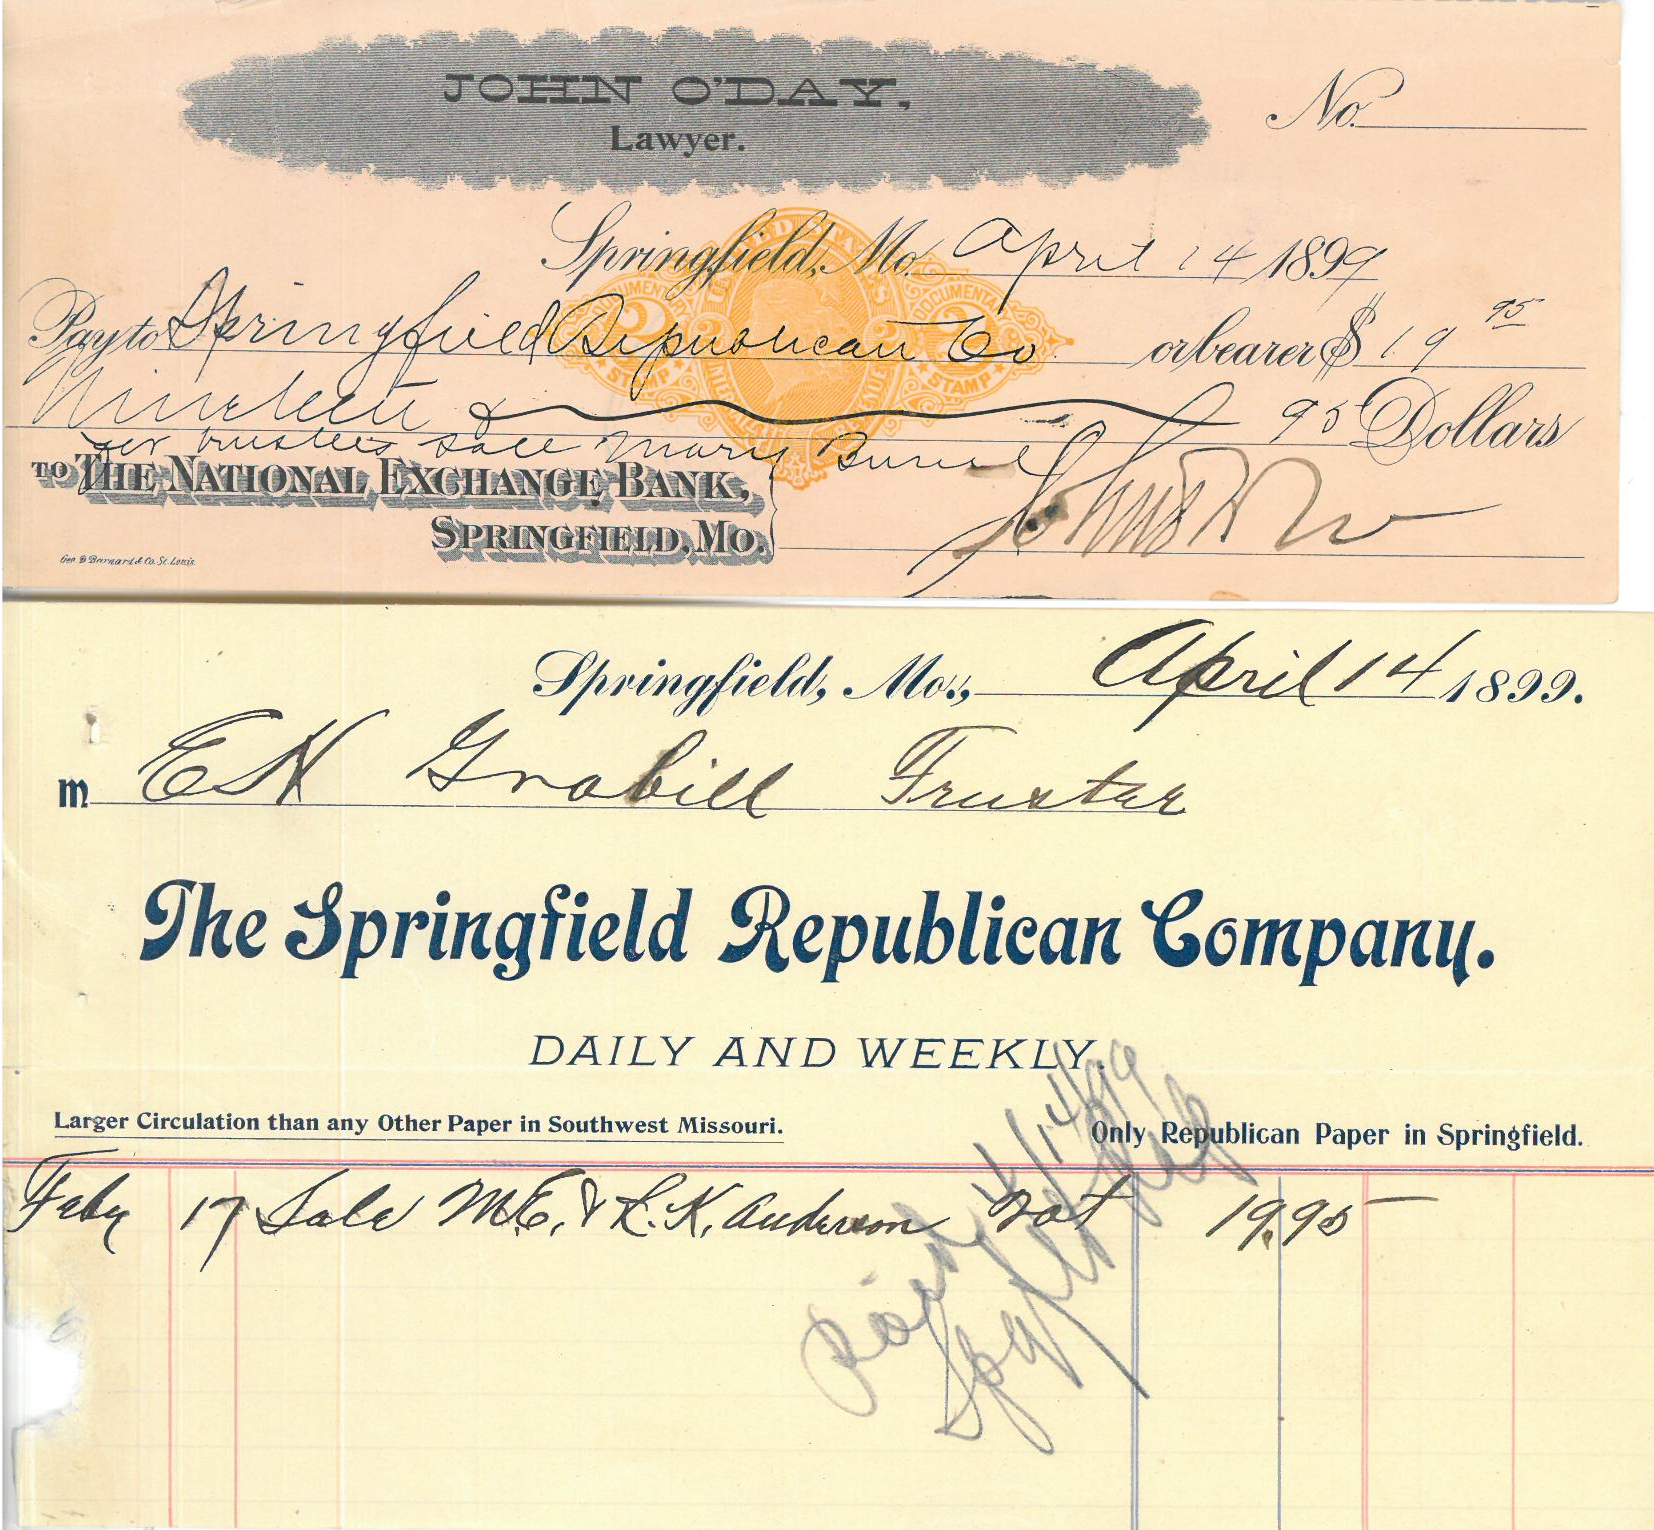 JOHN O'DAY,
Lawyer.
No.
Springfield, Mo. April 14 1899
Pay to Springfield Republican Co. or bearer $ 19 95
Nineteen & 95 Dollars
for trustees sale Mary
TO THE NATIONAL EXCHANGE BANK,
SPRINGFIELD, MO.
Geo D Barnard & Co. St. Louis.
UNITED STATES
DOCUMENTARY 2 2 DOCUMENTARY
STAMP STAMP
INTERNAL REVENUE
Springfield, Mo., April 14 1899.
M E H Grabill Trustee
The Springfield Republican Company.
DAILY AND WEEKLY.
Larger Circulation than any Other Paper in Southwest Missouri.
Only Republican Paper in Springfield.
Feby 17 Sale M.E. & L. K. Anderson Not 19.95
Paid 4/14/99